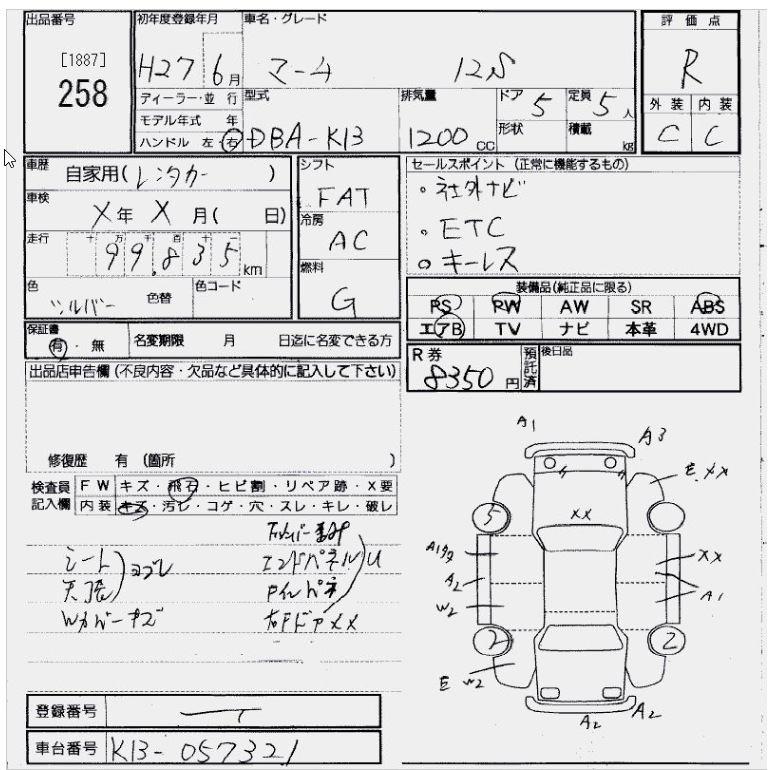 出品番号
[1887]
258
初年度登録年月
H27 6月
車名・グレード
マーチ 12S
評価点
R
外装 内装
C C
ディーラー・並 行
モデル年式 年
ハンドル 左 右
型式
DBA-K13
排気量
1200 CC
ドア 5
形状
定員 5 人
積載 kg
車歴
自家用(レンタカー)
車検
X年 X月( 日)
走行
十 万 千 百 十 一
99,835 km
色
シルバー 色替
色コード
シフト
FAT
冷房
AC
燃料
G
セールスポイント (正常に機能するもの)
・社外ナビ
・ETC
・キーレス
装備品(純正品に限る)
PS PW AW SR ABS
エアB TV ナビ 本革 4WD
保証書
有・無
名変期限 月 日迄に名変できる方
R券
8350円
預託済
後日品
出品店申告欄 (不良内容・欠品など具体的に記入して下さい)
修復歴 有 (箇所 )
検査員記入欄
FW キズ・飛石・ヒビ割・リペア跡・X要
内装 キズ・汚レ・コゲ・穴・スレ・キレ・破レ
シート
天張
ヨゴレ
エンドパネル U
右Fドア XX
A1
A3
E XX
XX
5
A2
W2
XX
A1
2
2
E W2
A2
A2
登録番号
車台番号 K13-057321